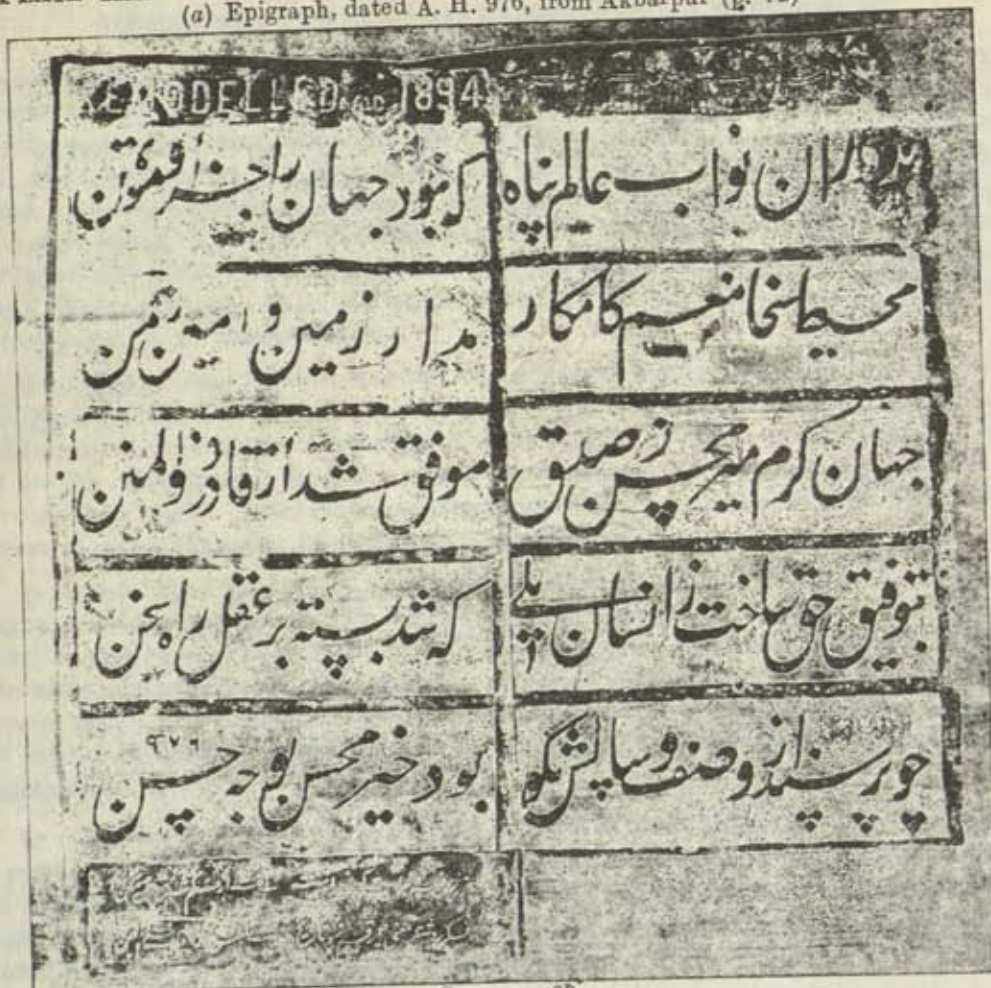 (a) Epigraph, dated A. H. 976, from Akbarpur
REMODELLED 1894
بدوران نواب عالم پناه که نبود جهان را جز او
محیط سخا منعم کامکار مدار زمین و امین زمن
جهان کرم میر محسن ز صدق موفق شد از قادر ذو المنن
بتوفیق حق ساخت ز انسان پلی که شد بسته بر عقل راه سخن
چو پرسند از وصف و سالش بگو بود خیر محسن بوجه حسن
۹۷۶